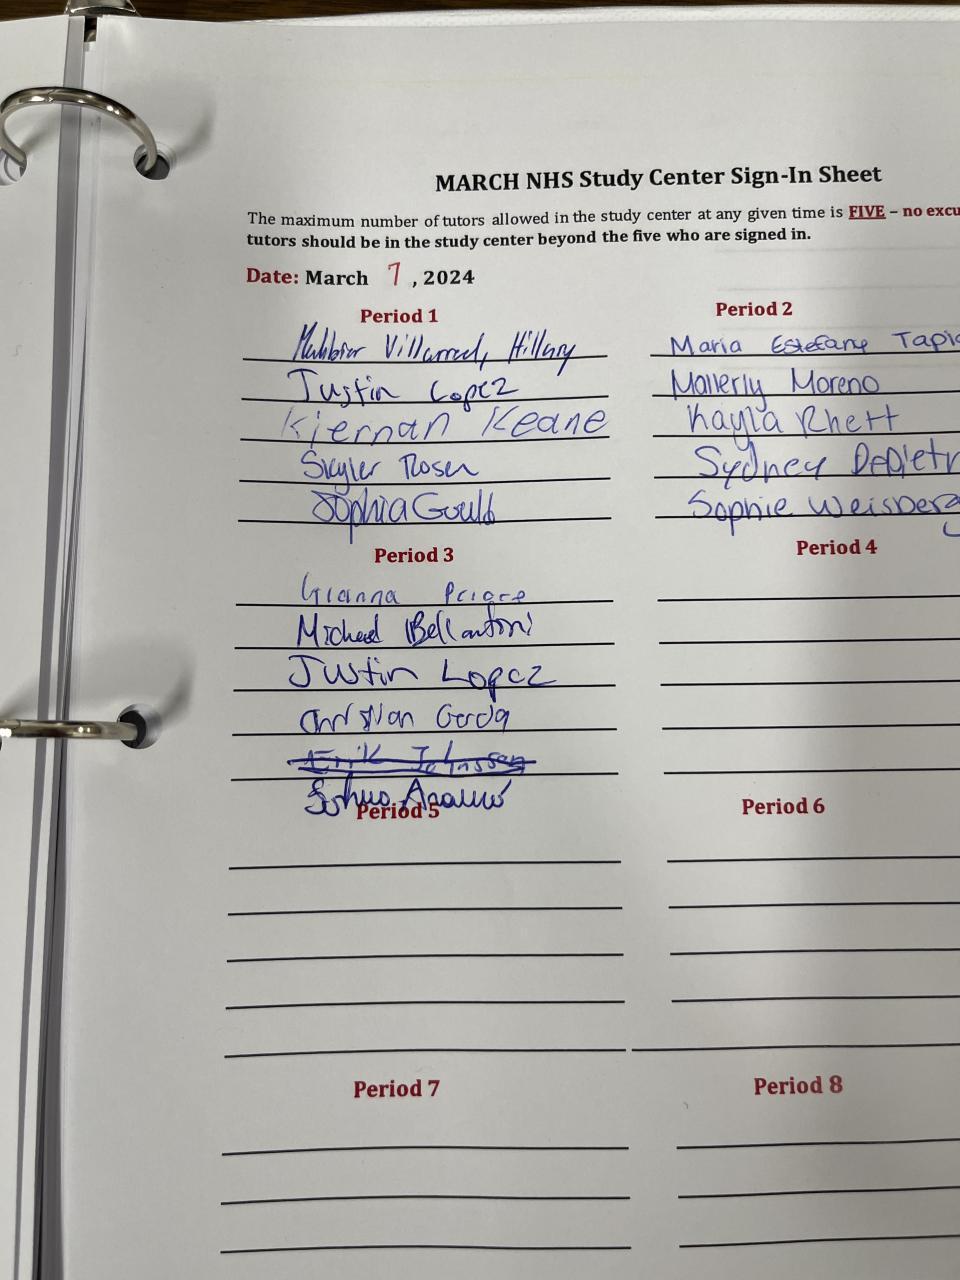 MARCH NHS Study Center Sign-In Sheet
The maximum number of tutors allowed in the study center at any given time is FIVE – no excu
tutors should be in the study center beyond the five who are signed in.
Date: March 7, 2024
Period 1
Villarreal, Hillary
Justin Lopez
Kiernan Keane
Skyler Rosen
Sophia Gould
Period 2
Maria Estefany Tapia
Mallerly Moreno
Kayla Rhett
Sydney DePietr
Sophie Weisberg
Period 3
Gianna
Michael Bellantoni
Justin Lopez
Christian
Erik Johnssen
Period 4
Period 5
Period 6
Period 7
Period 8